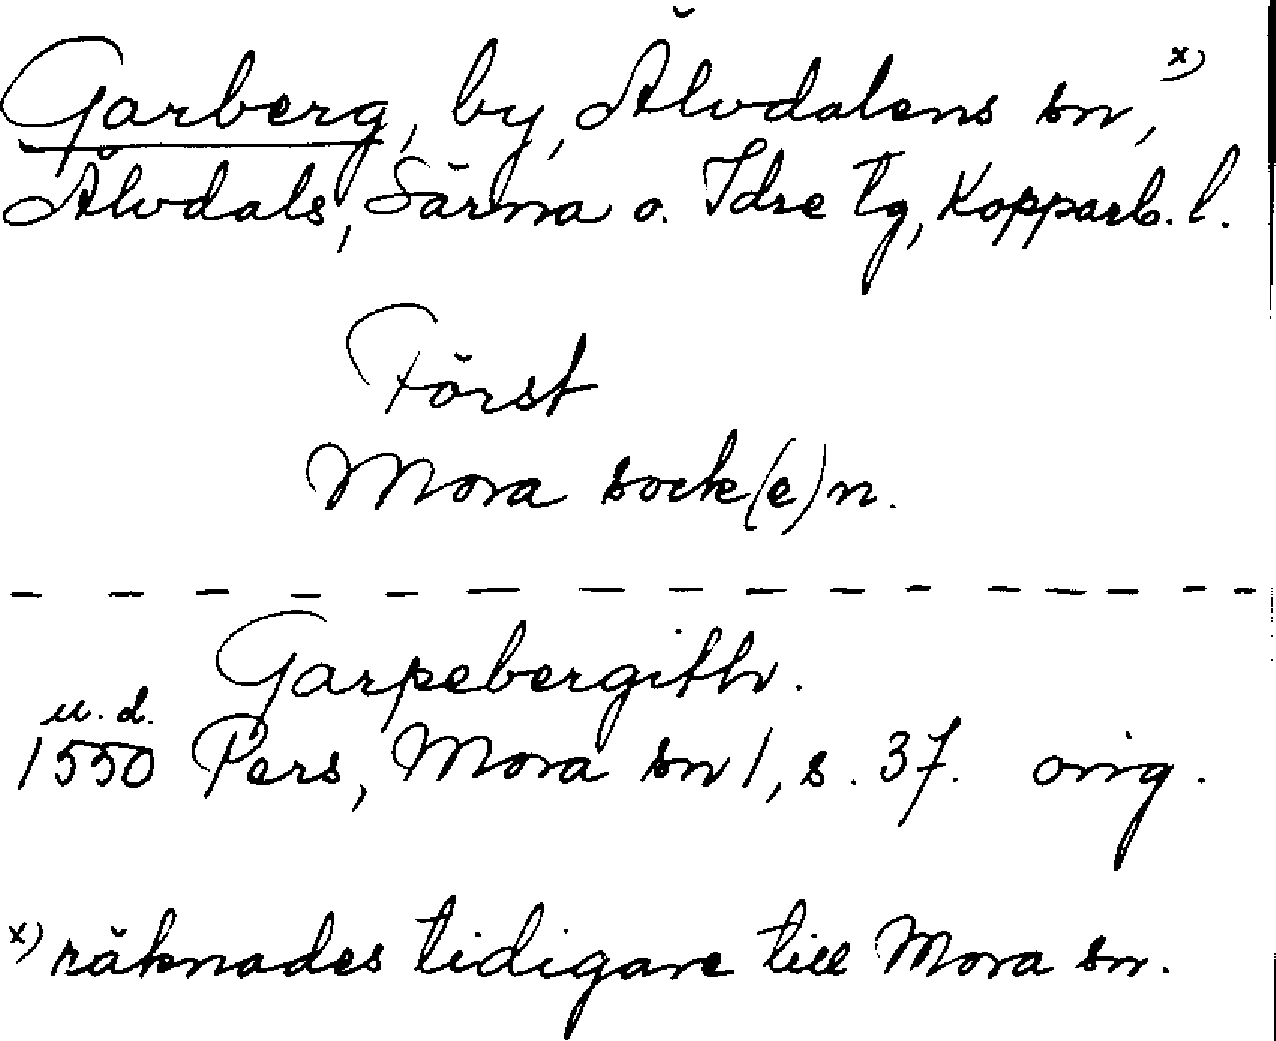 Garberg, by, Älvdalens sn, x)
Älvdals, Särna o. Idre tg, Kopparb. l.
Först
Mora sock(e)n.
Garpebergith.
u. d.
1550 Pers, Mora sn 1, s. 37. orig.
x) räknades tidigare till Mora sn.